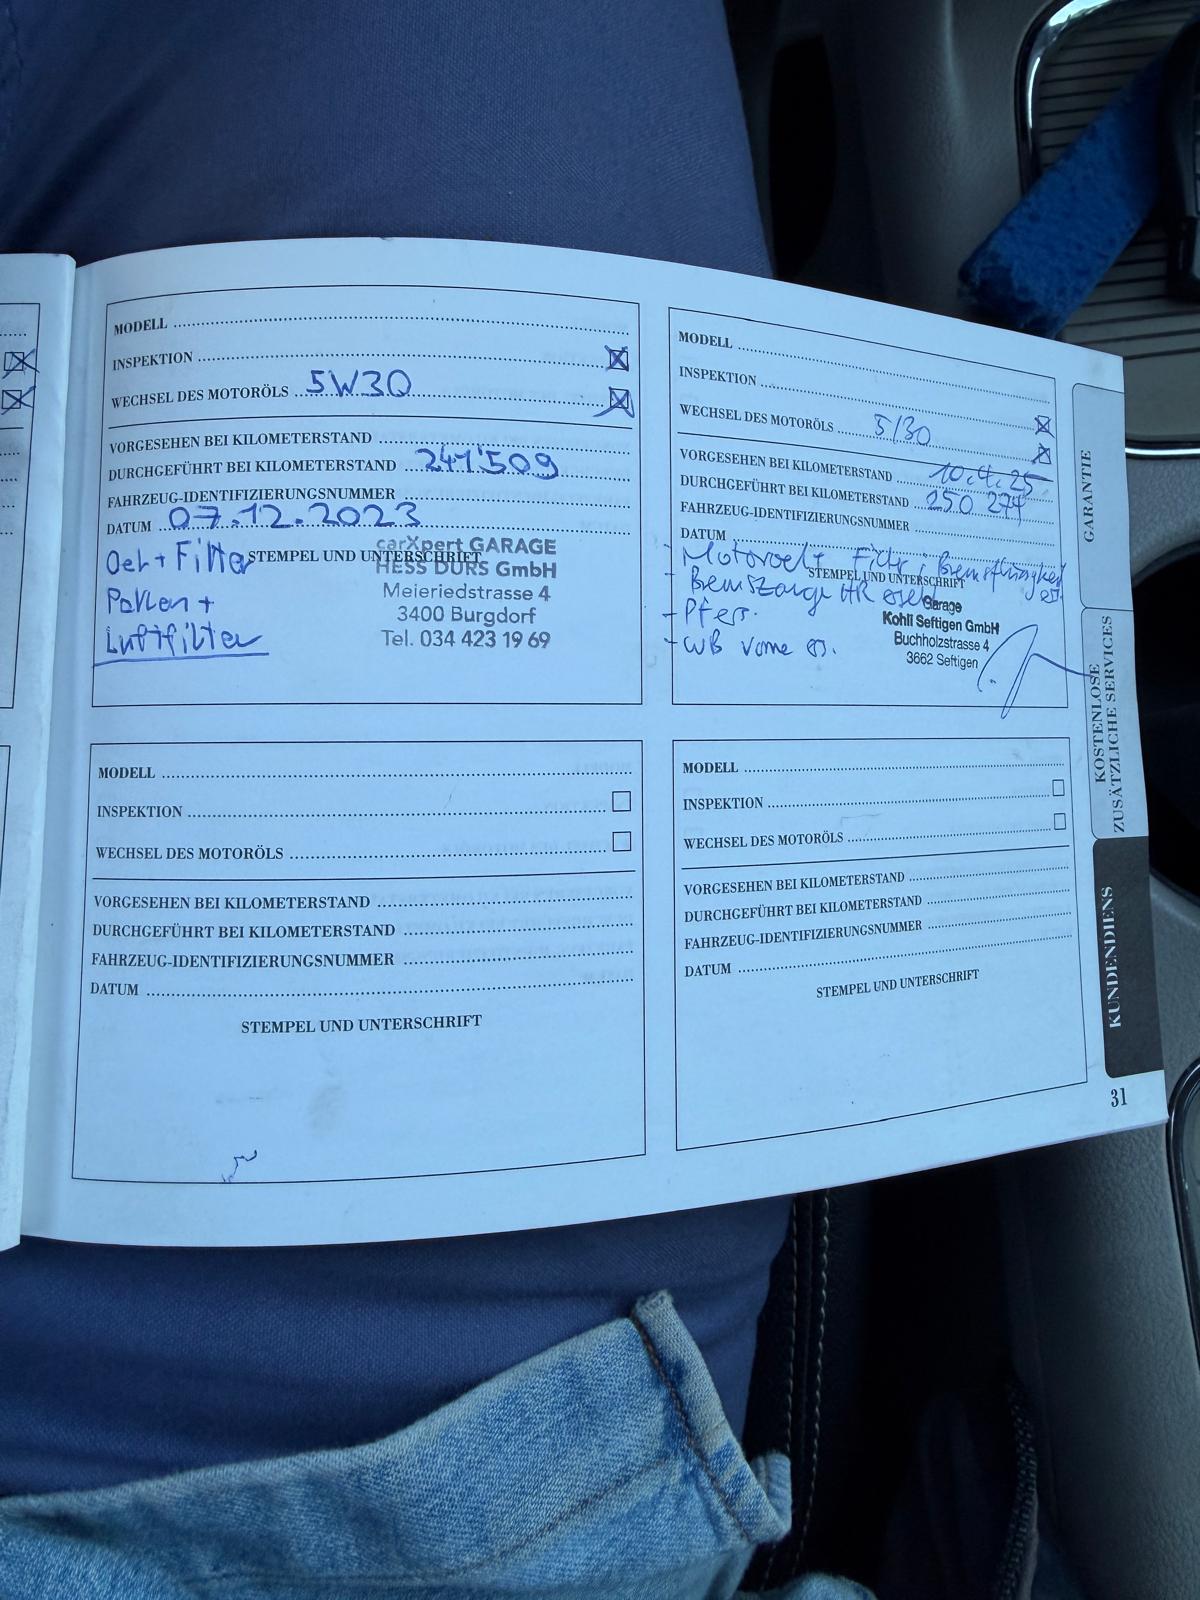 MODELL
INSPEKTION
WECHSEL DES MOTORÖLS 5W30
VORGESEHEN BEI KILOMETERSTAND
DURCHGEFÜHRT BEI KILOMETERSTAND 241'509
FAHRZEUG-IDENTIFIZIERUNGSNUMMER
DATUM 07.12.2023
STEMPEL UND UNTERSCHRIFT
Oel + Filter
Pollen +
Luftfilter
carXpert GARAGE
HESS DURS GmbH
Meieriedstrasse 4
3400 Burgdorf
Tel. 034 423 19 69
MODELL
INSPEKTION
WECHSEL DES MOTORÖLS 5/30
VORGESEHEN BEI KILOMETERSTAND 10.4.25
DURCHGEFÜHRT BEI KILOMETERSTAND 250 274
FAHRZEUG-IDENTIFIZIERUNGSNUMMER
DATUM
- Motoroel + Filter ; Bremsflüssigkeit
STEMPEL UND UNTERSCHRIFT
- Bremszange HR
- WB vorne
Garage
Kohli Seftigen GmbH
Buchholzstrasse 4
3662 Seftigen
MODELL
INSPEKTION
WECHSEL DES MOTORÖLS
VORGESEHEN BEI KILOMETERSTAND
DURCHGEFÜHRT BEI KILOMETERSTAND
FAHRZEUG-IDENTIFIZIERUNGSNUMMER
DATUM
STEMPEL UND UNTERSCHRIFT
MODELL
INSPEKTION
WECHSEL DES MOTORÖLS
VORGESEHEN BEI KILOMETERSTAND
DURCHGEFÜHRT BEI KILOMETERSTAND
FAHRZEUG-IDENTIFIZIERUNGSNUMMER
DATUM
STEMPEL UND UNTERSCHRIFT
GARANTIE
KOSTENLOSE
ZUSÄTZLICHE SERVICES
KUNDENDIENS
31